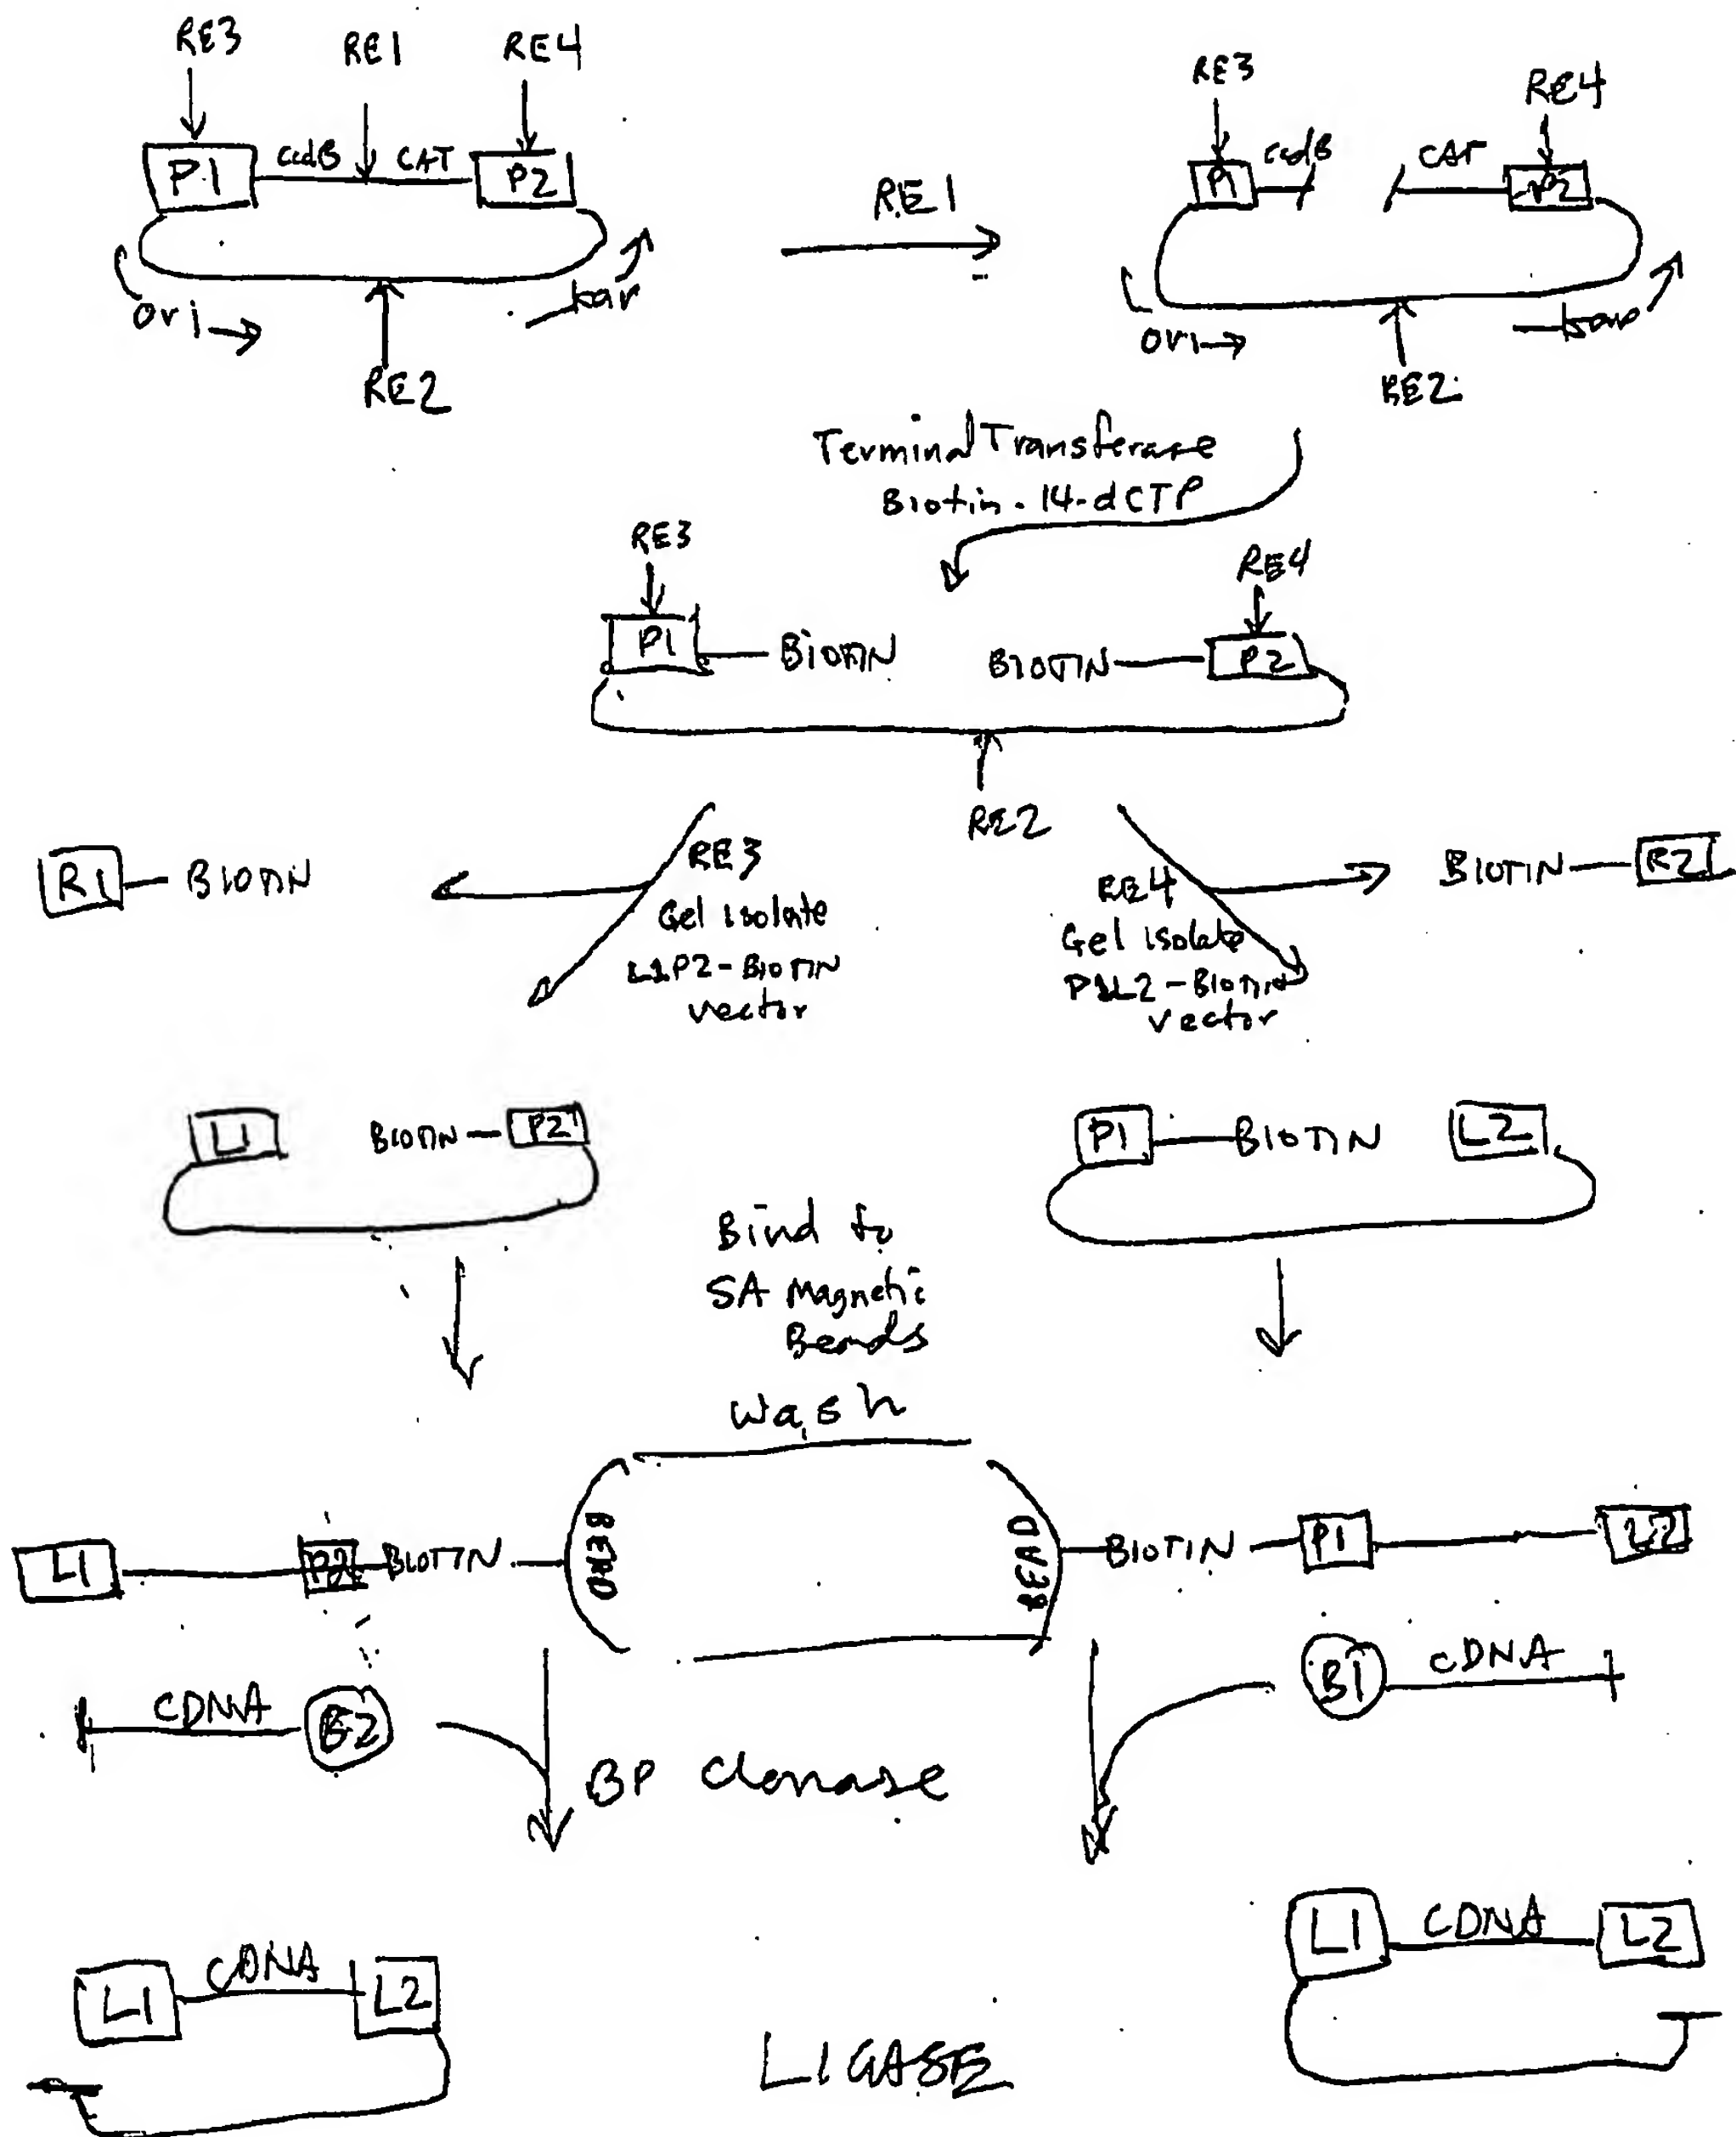 RE3
RE1
RE4
P1
ccdB
CAT
P2
Ori
kan
RE2
RE1
RE3
RE4
P1
ccdB
CAT
P2
Ori
kan
RE2
Terminal Transferase
Biotin-14-dCTP
RE3
RE4
P1
BIOTIN
BIOTIN
P2
RE2
R1
BIOTIN
RE3
Gel isolate
L1P2-BIOTIN
vector
RE4
Gel isolate
P1L2-BIOTIN
vector
BIOTIN
R2
L1
BIOTIN
P2
P1
BIOTIN
L2
Bind to
SA Magnetic
Beads
Wash
L1
P2
BIOTIN
BEAD
BEAD
BIOTIN
P1
L2
CDNA
B2
B1
CDNA
BP Clonase
L1
CDNA
L2
L1
CDNA
L2
LIGASE